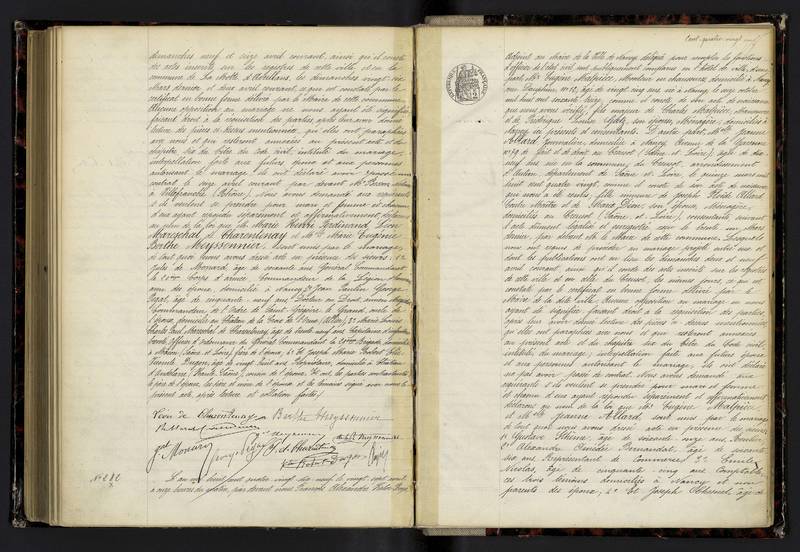 dimanches neuf et seize avril courant, ainsi qu'il conste
des actes inscrits sur les registres de cette ville et en la
commune de La Motte d'Aveillans, les dimanches vingt six
Mars dernier et deux avril courant, ce qui est constaté par le
certificat en bonne forme délivré par le Maire de cette commune.
Aucune opposition au mariage ne nous ayant été signifiée
faisant droit à la réquisition des parties après leur avoir donné
lecture des pièces ci-dessus mentionnées, qu'elles ont paraphées
avec nous et qui resteront annexées au présent acte et du
chapitre six du titre du code civil, intitulé du mariage,
interpellation faite aux futurs époux et aux personnes
autorisant le mariage, ils ont déclaré avoir passé un
contrat le seize avril courant par devant Me notaire
à Villefranche (Rhône), nous avons demandé aux époux
s'ils veulent se prendre pour mari et femme et chacun
d'eux ayant répondu séparément et affirmativement déclarons
au nom de la loi que Mr Marie Henri Ferdinand Léon
Mareschal de Charentenay et Mlle Marie Eugénie
Berthe Meyssonnier sont unis par le mariage,
de tout quoi nous avons dressé acte en présence des sieurs: 1°
Jules de Monard, âgé de soixante ans, Général Commandant
le 20ème Corps d'armée, Commandeur de la Légion d'honneur
ami des époux, domicilié à Nancy; 2° Jean Paulin George
âgé de cinquante neuf ans, Docteur en Droit, ancien
Commandeur de l'Ordre de Saint Grégoire le Grand, oncle de
l'époux, domicilié au Château de la Croix (Allier); 3° Marie
Charles Paul Mareschal de Charentenay, âgé de trente neuf ans, Capitaine d'infanterie
breveté, officier d'ordonnance du Général Commandant la 20ème Brigade, domicilié
à Mâcon (Saône et Loire), frère de l'époux; 4° Et Joseph Marie Robert
âgé de vingt huit ans, Propriétaire, domicilié à Château
(Haute Saône), cousin de l'épouse. Et ont, les parties contractantes
le père de l'époux, les père et mère de l'épouse et les témoins signé avec nous le
présent acte, après lecture et collation faites.
Léon de Charentenay Berthe Meyssonnier
Gal Monard
de Charentenay
No 282
L'an mil huit cent quatre vingt dix neuf le vingt sept avril
à onze heures du matin, par devant nous François Alexandre
Cent quatre vingt neuf
adjoint au Maire de la Ville de Nancy délégué pour remplir les fonctions
d'officier de l'état civil, ont publiquement comparu en l'hôtel de ville, d'une
part Mr Eugène Malprice, Monteur en chaussures, domicilié à Nancy
rue No 52, âgé de vingt six ans né à Nancy le onze octobre
mil huit cent soixante treize, comme il conste de son acte de naissance
que nous avons vérifié, fils majeur de Charles Malprice, Manœuvre
et de Louise son épouse, Ménagère, domiciliés à
Nancy ici présents et consentants. D'autre part, Mlle Jeanne
Allard, Journalière, domiciliée à Nancy, Avenue de la Garenne
No 19 de fait et de droit au Creusot (Saône et Loire), âgée de dix
neuf ans née en la commune du Creusot, arrondissement
d'Autun, département de Saône et Loire, le quinze mars mil
huit cent quatre vingt comme il conste de son acte de naissance
qui nous a été remis, fille mineure de Joseph Allard
Contre Maître et de Maria Dion son épouse, Ménagère,
domiciliés au Creusot (Saône et Loire), consentants suivant
l'acte dûment légalisé et enregistré reçu le trente un Mars
dernier, par devant Mr le Maire de cette commune. Lesquels
nous ont requis de procéder au mariage projeté entre eux et
dont les publications ont eu lieu les dimanches deux et neuf
avril courant ainsi qu'il conste des actes inscrits sur les registres
de cette ville et en celle du Creusot, les mêmes jours, ce qui est
constaté par le certificat en bonne forme délivré par le
Maire de la dite ville. Aucune opposition au mariage ne nous
ayant été signifiée, faisant droit à la réquisition des parties,
après leur avoir donné lecture des pièces ci-dessus mentionnées,
qu'elles ont paraphées avec nous et qui resteront annexées
au présent acte et du chapitre six du titre du Code civil,
intitulé du mariage, interpellation faite aux futurs époux
et aux personnes autorisant le mariage, ils ont déclaré
n'avoir pas passé de contrat. Nous avons demandé aux
époux s'ils veulent se prendre pour mari et femme
et chacun d'eux ayant répondu séparément et affirmativement
déclarons au nom de la loi que Mr Eugène Malprice
et Mlle Jeanne Allard sont unis par le mariage
de tout quoi nous avons dressé acte en présence des sieurs
1° Gustave âgé de soixante onze ans, Rentier;
2° Alexandre Bernardat, âgé de soixante
six ans, Représentant de Commerce; 3° Louis
Nicolas, âgé de cinquante cinq ans, Comptable
ces trois témoins domiciliés à Nancy et non
parents des époux; 4° Et Joseph Chesnel, âgé de